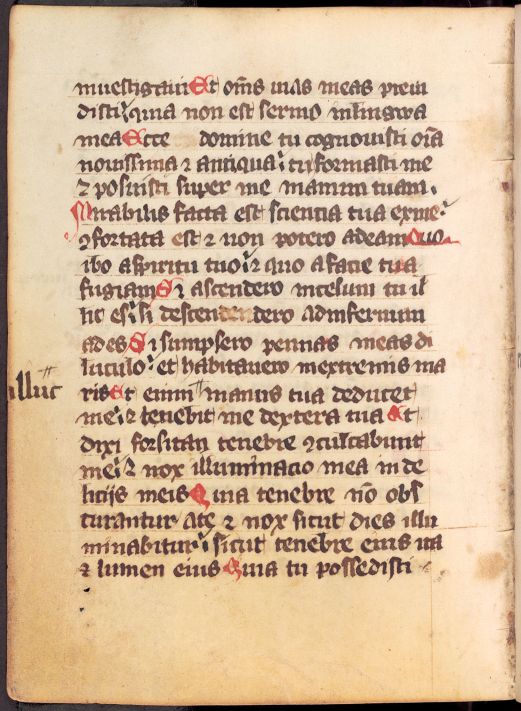 inuestigasti Et om̄s uias meas preui
disti quia non est sermo in lingwa
mea Ecce domine tu cognouisti om̄ia
nouissima ⁊ antiqua tu formasti me
⁊ posuisti super me manum tuam.
Mirabilis facta est sciencia tua ex me
ꝯfortata est ⁊ non potero ad eam Quo
ibo a spiritu tuo ⁊ quo a facie tua
fugiam Si ascendero in celum tu il
lic es si descendendero ad infernum
ades Si sumpsero pennas meas di
luculo et habitauero in extremis ma
illuc
ris Et enim manus tua deducet
me ⁊ tenebit me dextera tua Et
dixi forsitan tenebre ꝯculcabunt
me ⁊ nox illuminacio mea in de
licijs meis Quia tenebre nō obs
curantur a te ⁊ nox sicut dies illu
minabitur sicut tenebre eius ita
⁊ lumen eius Quia tu possedisti